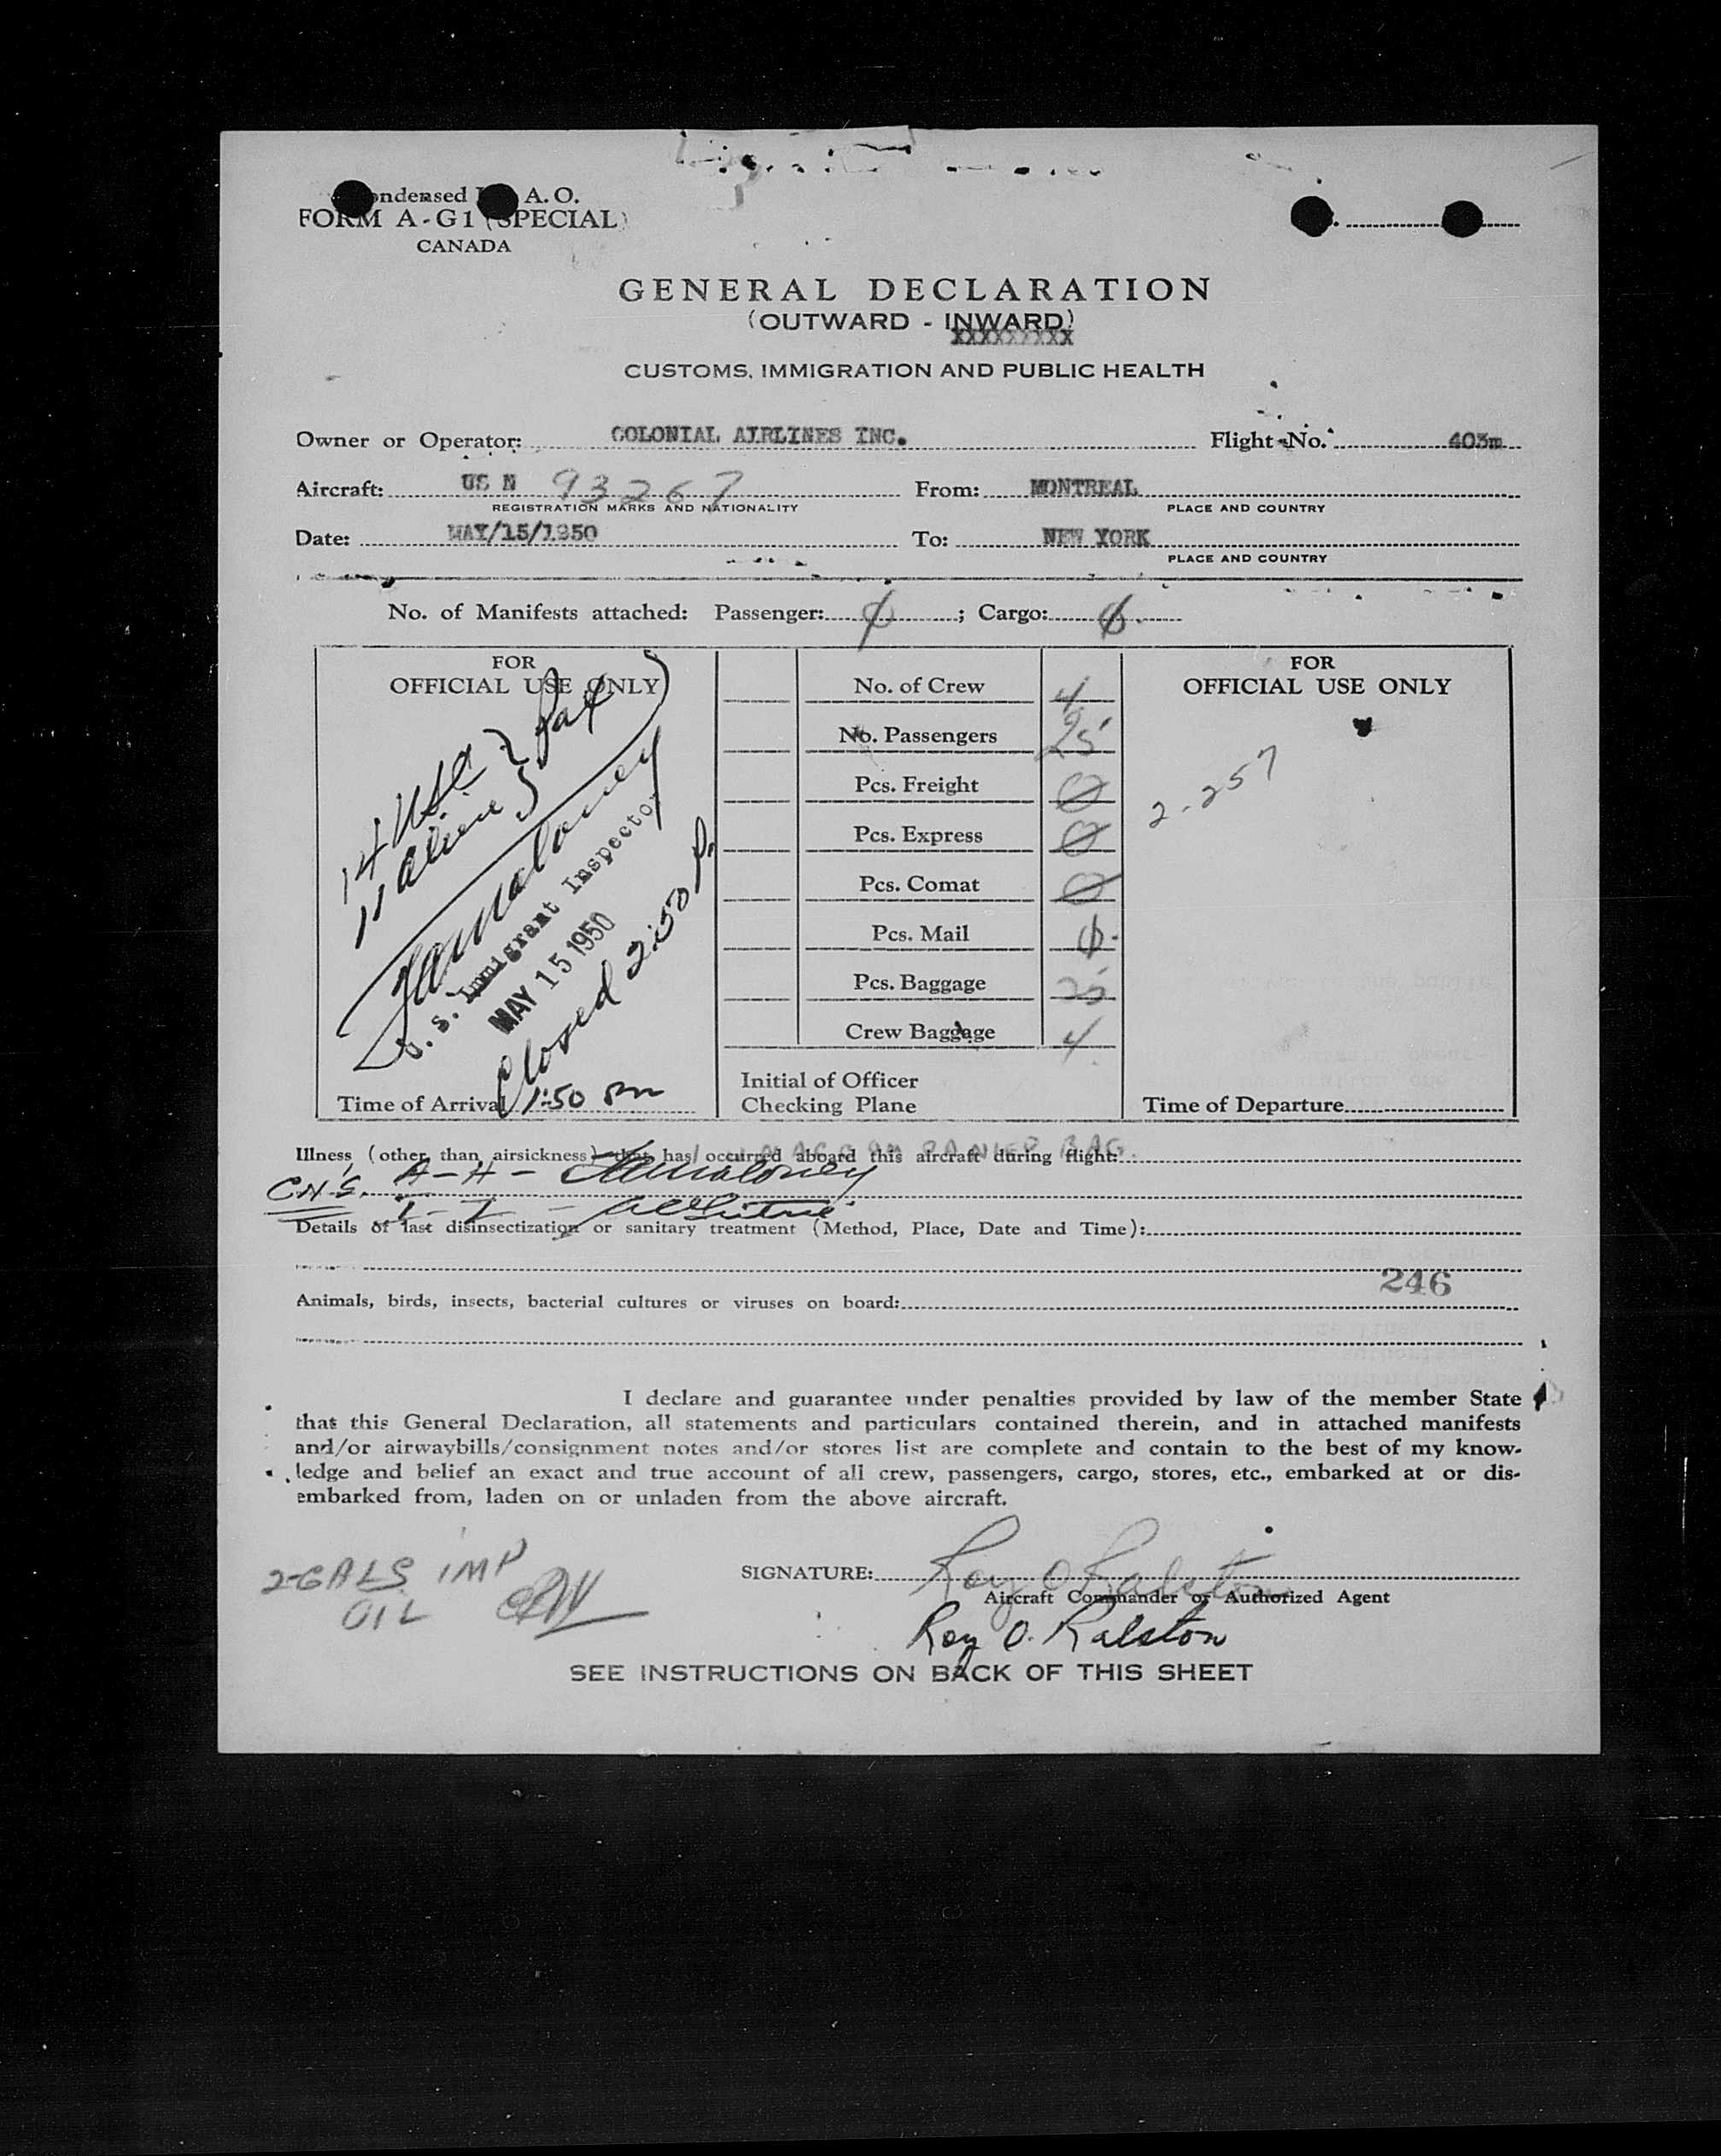 ondensed A. O.
FORM A-G1 (SPECIAL)
CANADA
GENERAL DECLARATION
(OUTWARD - INWARD)
XXXXXXXXX
CUSTOMS, IMMIGRATION AND PUBLIC HEALTH
Owner or Operator: COLONIAL AIRLINES INC. Flight No. 403m
Aircraft: US N 93267 From: MONTREAL
REGISTRATION MARKS AND NATIONALITY PLACE AND COUNTRY
Date: MAY/15/1950 To: NEW YORK
PLACE AND COUNTRY
No. of Manifests attached: Passenger: ; Cargo:
FOR
OFFICIAL USE ONLY
14 USC } Pax
11 Alien
U. S. Immigrant Inspector
MAY 15 1950
Closed 2:50 P.
Time of Arrival 1:50 Pm
No. of Crew 4
No. Passengers 25
Pcs. Freight 0
Pcs. Express 0
Pcs. Comat 0
Pcs. Mail 0
Pcs. Baggage 25
Crew Baggage 4
Initial of Officer
Checking Plane
FOR
OFFICIAL USE ONLY
2-257
Time of Departure
Illness (other than airsickness) that has occurred aboard this aircraft during flight:
A-H - Maloney
Details of last disinsectization or sanitary treatment (Method, Place, Date and Time):
246
Animals, birds, insects, bacterial cultures or viruses on board:
I declare and guarantee under penalties provided by law of the member State
that this General Declaration, all statements and particulars contained therein, and in attached manifests
and/or airwaybills/consignment notes and/or stores list are complete and contain to the best of my know-
ledge and belief an exact and true account of all crew, passengers, cargo, stores, etc., embarked at or dis-
embarked from, laden on or unladen from the above aircraft.
2-GALS IMP
OIL
SIGNATURE: Roy O Ralston
Aircraft Commander or Authorized Agent
Roy O. Ralston
SEE INSTRUCTIONS ON BACK OF THIS SHEET